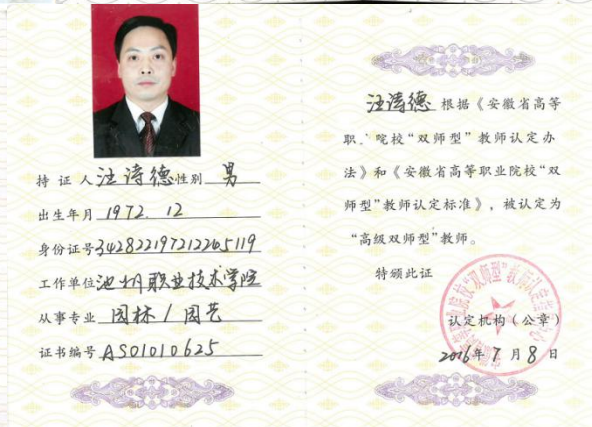 持 证 人 汪涛德 性别 男
出生年月 1972. 12
身份证号 342822197212265119
工作单位 池州职业技术学院
从事专业 园林/园艺
证书编号 AS01010625
汪涛德 根据《安徽省高等
职、院校“双师型”教师认定办
法》和《安徽省高等职业院校“双
师型”教师认定标准》，被认定为
“高级双师型”教师。
特颁此证
认定机构（公章）
2016年7月8日